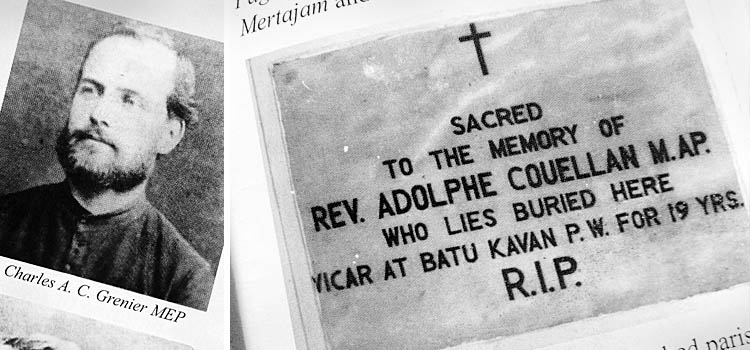 Charles A. C. Grenier MEP
Mertajam and
SACRED
TO THE MEMORY OF
REV. ADOLPHE COUELLAN M.AP.
WHO LIES BURIED HERE
VICAR AT BATU KAVAN P.W. FOR 19 YRS.
R.I.P.